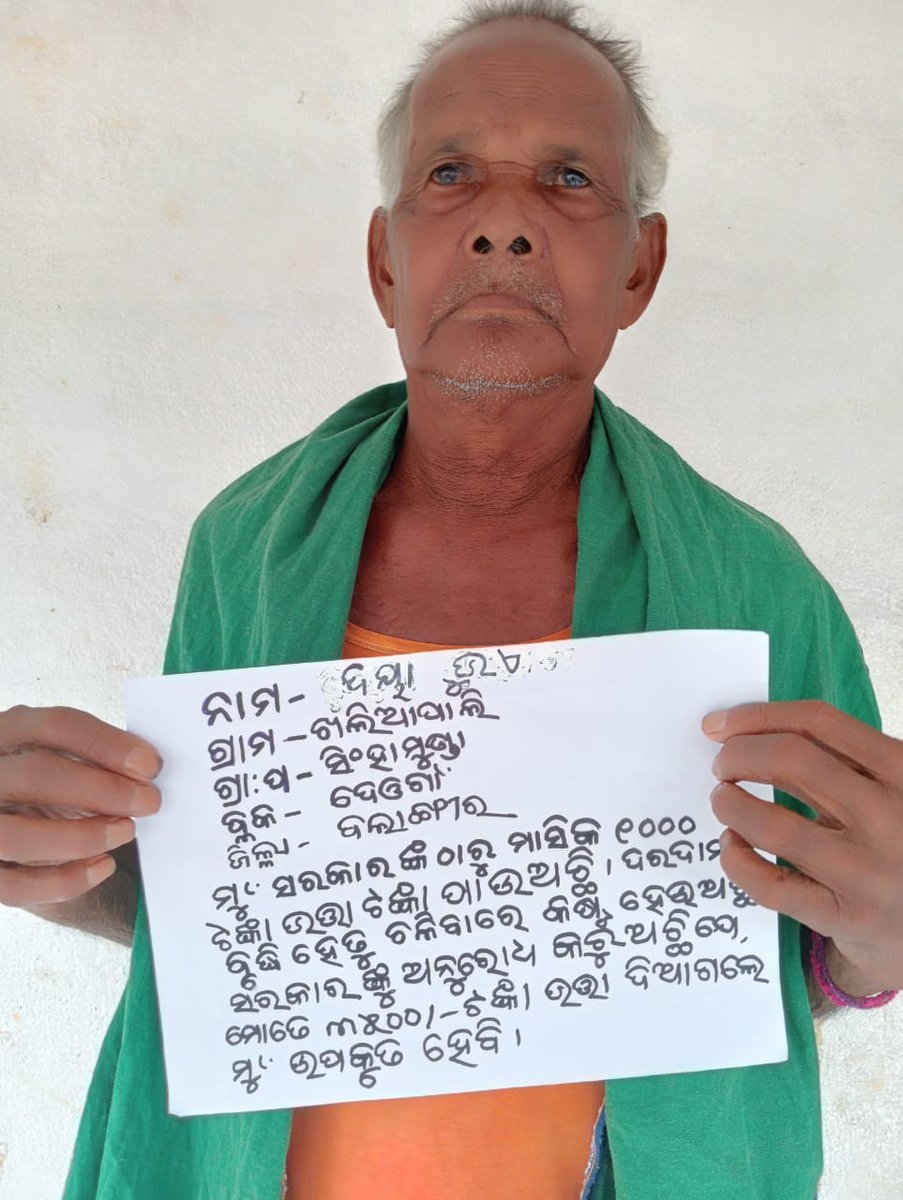 ନାମ-
ଗ୍ରାମ-ଖଲିଆପାଲି
ଗ୍ରା:ପ- ସିଂହାମୁଣ୍ଡା
ବ୍ଲକ- ଦେଓଗାଁ
ଜିଲ୍ଲା- ବଲାଙ୍ଗୀର
ମୁଁ ସରକାରଙ୍କ ଠାରୁ ମାସିକ ୧୦୦୦
ଟଙ୍କା ଭତ୍ତା ଟଙ୍କା ପାଉଅଛି। ଦରଦାମ
ବୃଦ୍ଧି ହେତୁ ଚଳିବାରେ କଷ୍ଟ ହେଉଅଛି
ସରକାରଙ୍କୁ ଅନୁରୋଧ କରୁଅଛି ଯେ,
ମୋତେ ୩୫୦୦/- ଟଙ୍କା ଭତ୍ତା ଦିଆଗଲେ
ମୁଁ ଉପକୃତ ହେବି।